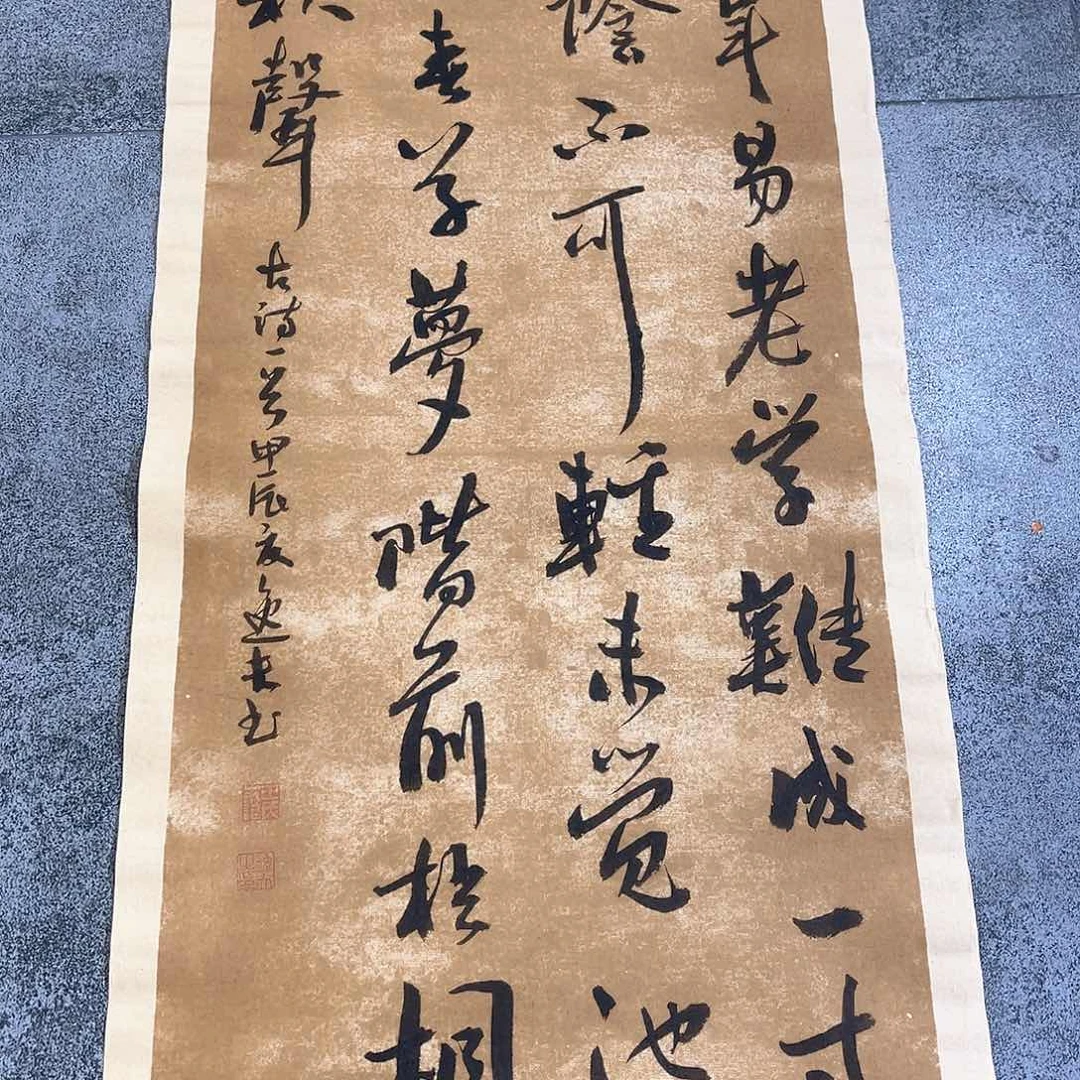 年易老学難成一寸
陰不可輕未覺池
春草夢階前梧桐
秋聲 古詩一首甲辰夏逸书